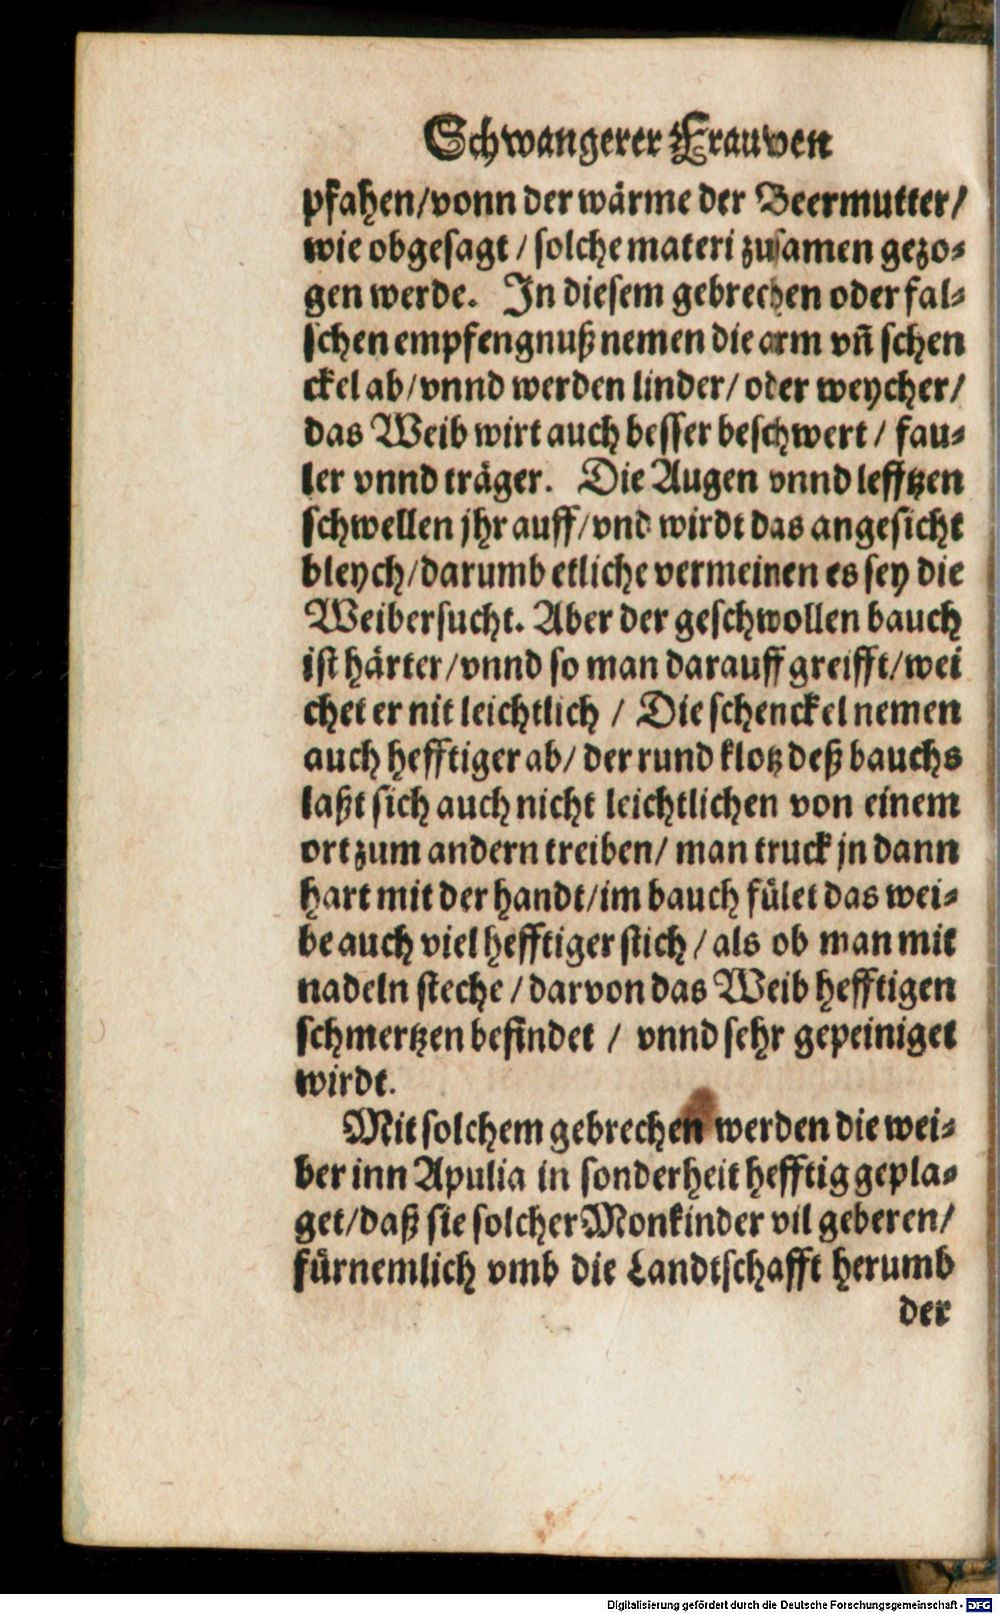 Schwangerer Frauwen
pfahen/vonn der wärme der Beermutter/
wie obgesagt / solche materi zusamen gezo-
gen werde. In diesem gebrechen oder fal-
schen empfengnuß nemen die arm vñ schen
ckel ab/vnnd werden linder/ oder weycher/
das Weib wirt auch besser beschwert / fau-
ler vnnd träger. Die Augen vnnd lefftzen
schwellen jhr auff/vnd wirdt das angesicht
bleych/darumb etliche vermeinen es sey die
Weibersucht. Aber der geschwollen bauch
ist härter/vnnd so man darauff greifft/wei
chet er nit leichtlich / Die schenckel nemen
auch hefftiger ab/ der rund klotz deß bauchs
laßt sich auch nicht leichtlichen von einem
ort zum andern treiben/ man truck jn dann
hart mit der handt/im bauch fület das wei-
be auch viel hefftiger stich / als ob man mit
nadeln steche / darvon das Weib hefftigen
schmertzen befindet / vnnd sehr gepeiniget
wirdt.
Mit solchem gebrechen werden die wei-
ber inn Apulia in sonderheit hefftig gepla-
get/daß sie solcher Monkinder vil geberen/
fürnemlich vmb die Landtschafft herumb
der
Digitalisierung gefördert durch die Deutsche Forschungsgemeinschaft - DFG